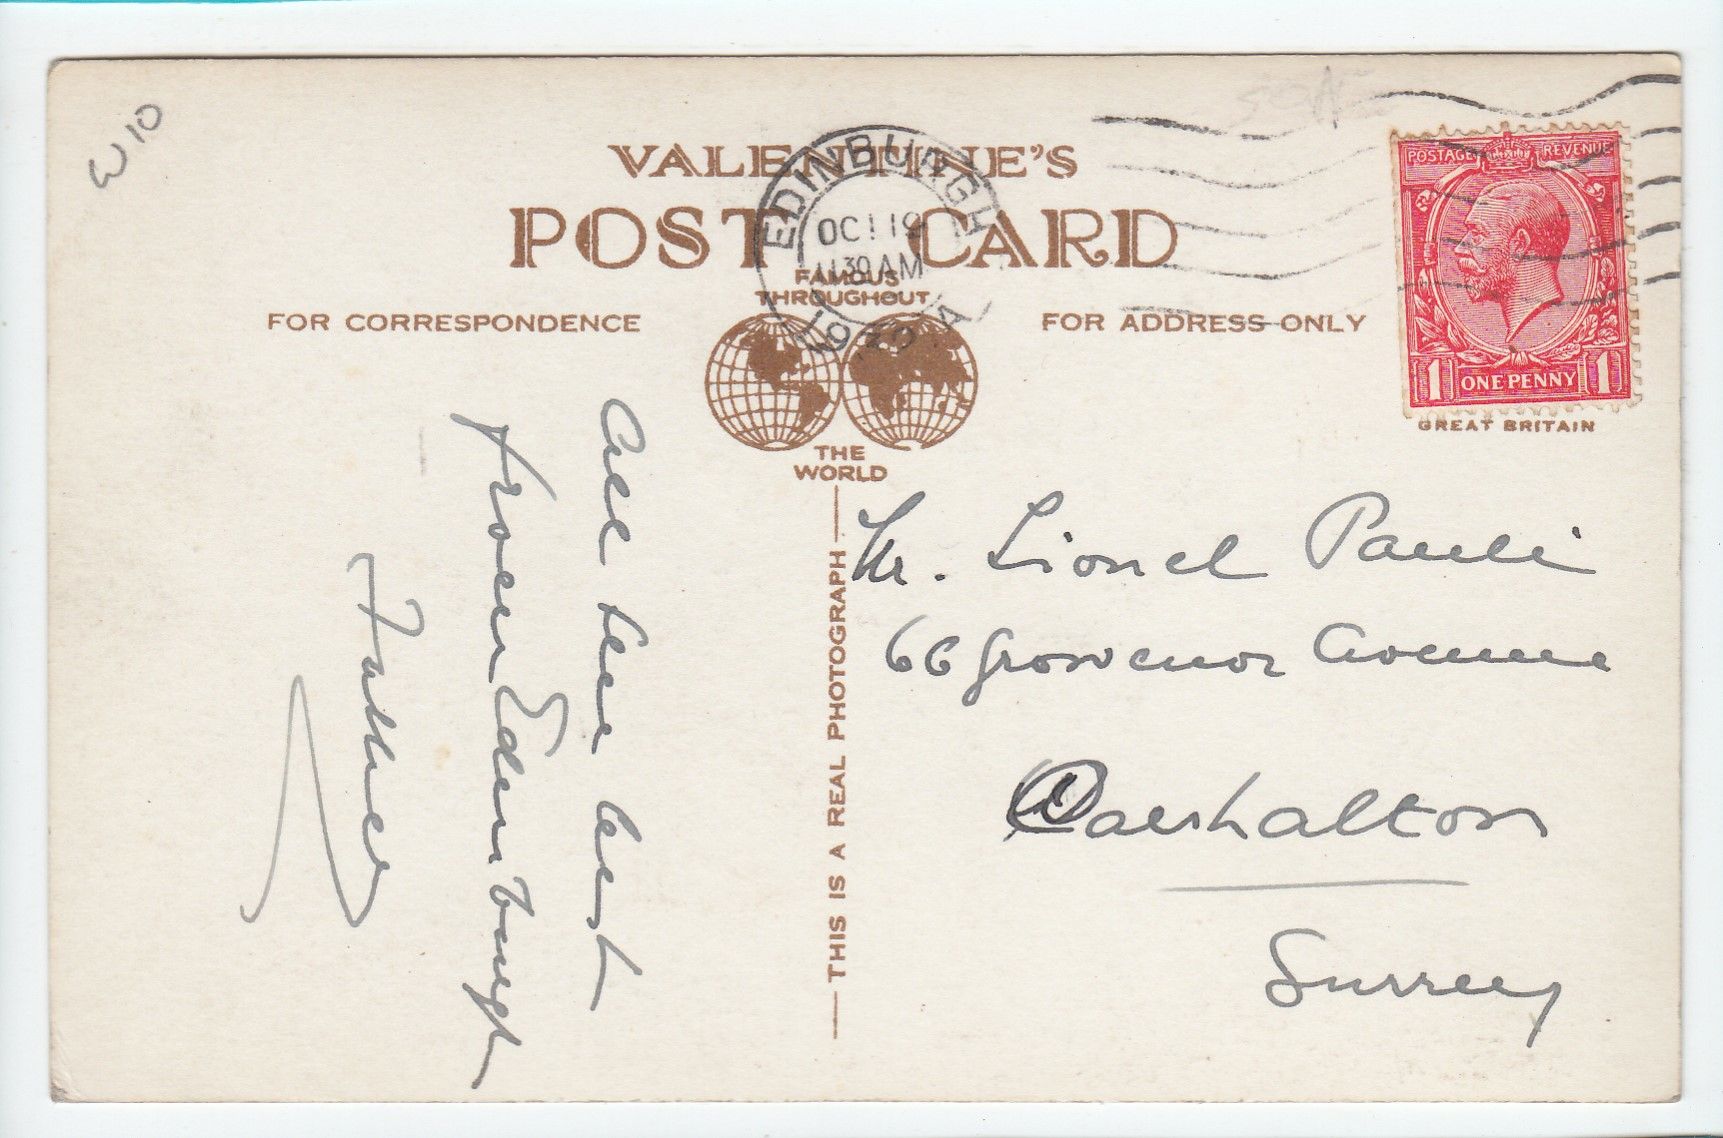 W10
VALENTINE'S
POST CARD
FAMOUS
THROUGHOUT
THE
WORLD
FOR CORRESPONDENCE
FOR ADDRESS ONLY
EDINBURGH
OC 19
11 30 AM
POSTAGE REVENUE
1 ONE PENNY 1
GREAT BRITAIN
All the best
from Edinburgh
Father
THIS IS A REAL PHOTOGRAPH
Mr. Lionel Pauli
66 Grosvenor Avenue
Carshalton
Surrey